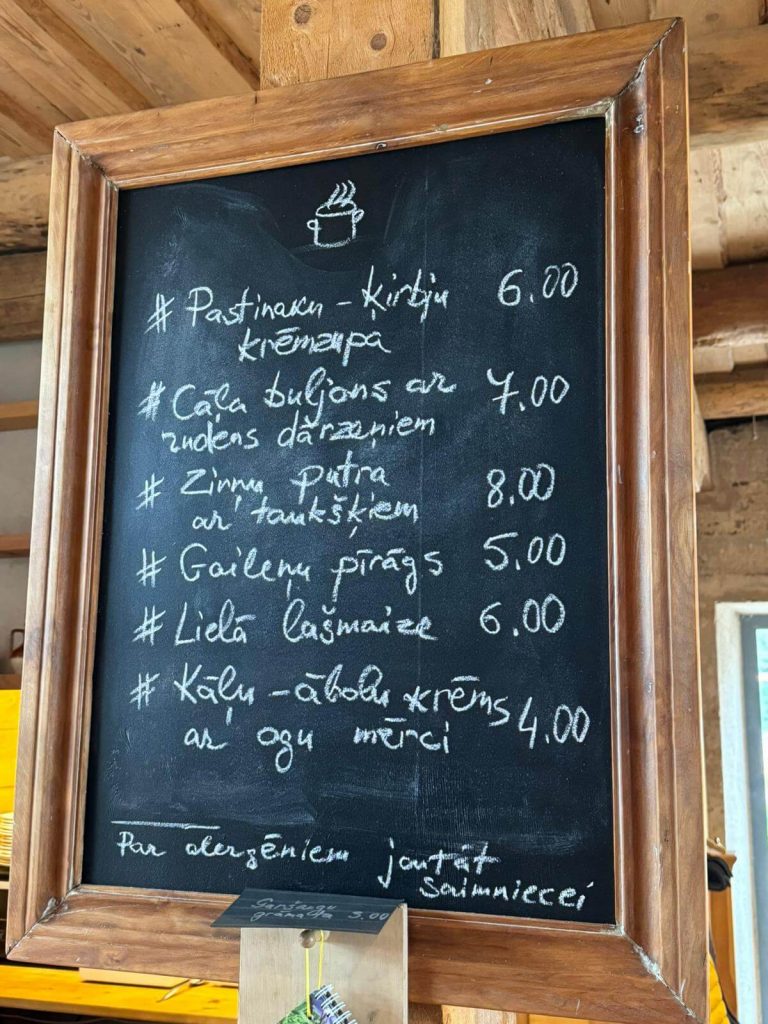 # Pastinaku - ķirbju 6.00
krēmzupa
# Cāļa buljons ar 7.00
rudens dārzeņiem
# Zirņu putra 8.00
ar taukšķiem
# Gaileņu pīrāgs 5.00
# Lielā lašmaize 6.00
# Kāļu - ābolu krēms 4.00
ar ogu mērci
Par alergēniem jautāt
saimniecei
grāmata 3.00